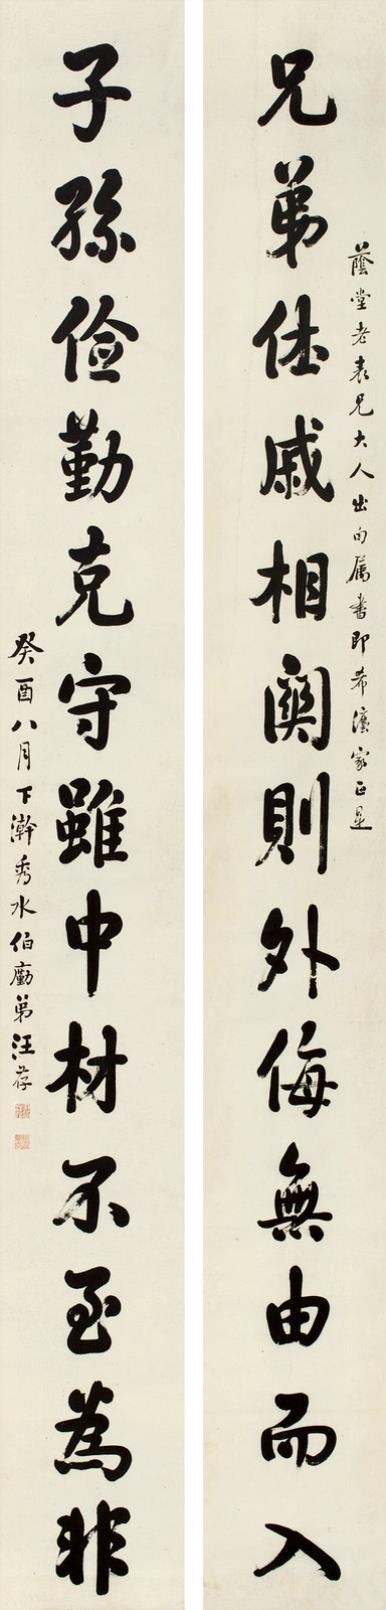 蔭堂老表兄大人出句屬書即希濱家正是
兄弟休戚相關則外侮無由而入
子孫儉勤克守雖中材不至為非
癸酉八月下澣秀水伯勵弟汪荐